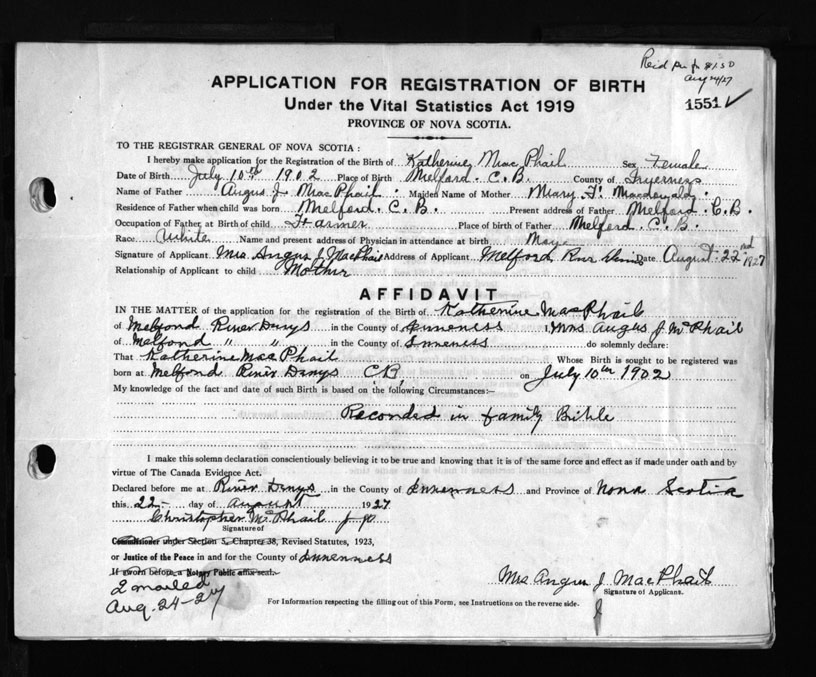 Reid Au fr $1.50
Aug 24/27
APPLICATION FOR REGISTRATION OF BIRTH
Under the Vital Statistics Act 1919
1551
PROVINCE OF NOVA SCOTIA.
TO THE REGISTRAR GENERAL OF NOVA SCOTIA :
I hereby make application for the Registration of the Birth of Katherine MacPhail Sex Female
Date of Birth July 10th 1902 Place of Birth Melford. C. B. County of Inverness
Name of Father Angus J. MacPhail. Maiden Name of Mother Mary
Residence of Father when child was born Melford. C. B. Present address of Father Melford. C. B.
Occupation of Father at Birth of child Farmer Place of Birth of Father Melford. C. B.
Race White Name and present address of Physician in attendance at birth
Signature of Applicant Mrs. Angus J MacPhail Address of Applicant Melford River Denis Date August 22nd 1927
Relationship of Applicant to child Mother
AFFIDAVIT
IN THE MATTER of the application for the registration of the Birth of Katherine MacPhail
of Melford River Denys in the County of Inverness I, Mrs Angus J McPhail
of Melford " " in the County of Inverness do solemnly declare:
That Katherine MacPhail Whose Birth is sought to be registered was
born at Melford River Denys C.B, on July 10th 1902
My knowledge of the fact and date of such Birth is based on the following Circumstances:—
Recorded in family Bible
I make this solemn declaration conscientiously believing it to be true and knowing that it is of the same force and effect as if made under oath and by
virtue of The Canada Evidence Act.
Declared before me at River Denys in the County of Inverness and Province of Nova Scotia
this 22- day of August 1927
Christopher McPhail J.P.
Signature of
Commissioner under Section 5, Chapter 38, Revised Statutes, 1923,
or Justice of the Peace in and for the County of Inverness
If sworn before a Notary Public affix seal.
Mrs Angus J. MacPhail
Signature of Applicant.
2 mailed
Aug. 24-27
For Information respecting the filling out of this Form, see Instructions on the reverse side.